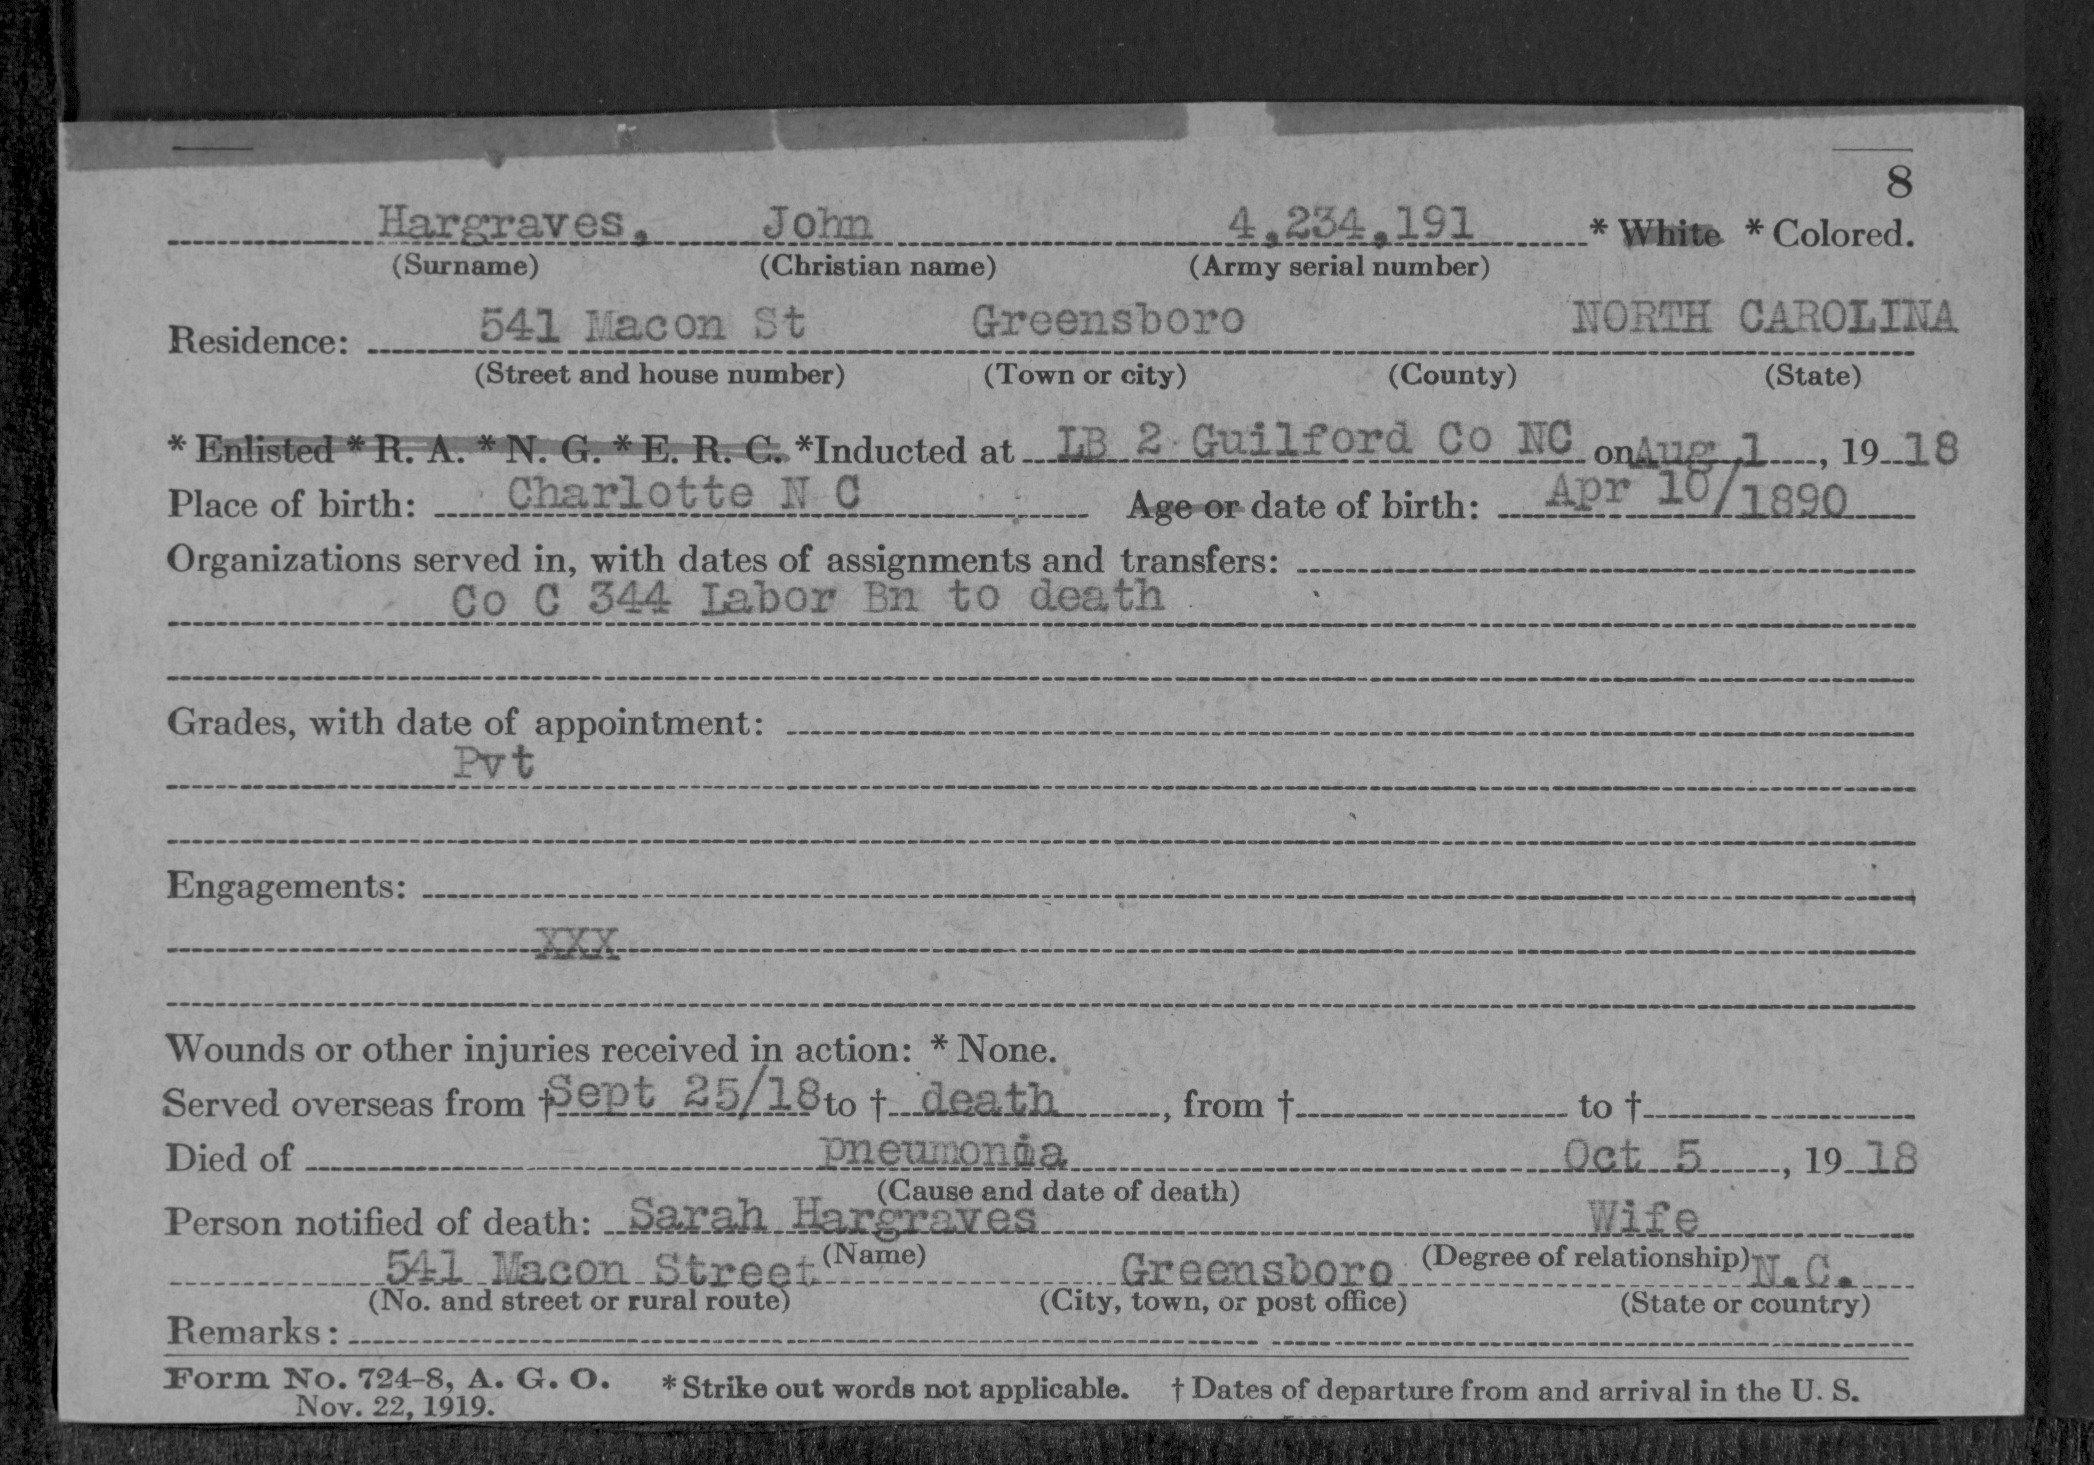 8
Hargraves, John 4,234,191 * White * Colored.
(Surname) (Christian name) (Army serial number)
Residence: 541 Macon St Greensboro NORTH CAROLINA
(Street and house number) (Town or city) (County) (State)
* Enlisted * R. A. * N. G. * E. R. C. *Inducted at LB 2 Guilford Co NC on Aug 1, 1918
Place of birth: Charlotte N C Age or date of birth: Apr 10/1890
Organizations served in, with dates of assignments and transfers:
Co C 344 Labor Bn to death
Grades, with date of appointment:
Pvt
Engagements:
XXX
Wounds or other injuries received in action: * None.
Served overseas from † Sept 25/18 to † death, from † to †
Died of pneumonia Oct 5, 1918
(Cause and date of death)
Person notified of death: Sarah Hargraves Wife
(Name) (Degree of relationship)
541 Macon Street Greensboro N.C.
(No. and street or rural route) (City, town, or post office) (State or country)
Remarks:
Form No. 724-8, A. G. O. * Strike out words not applicable. † Dates of departure from and arrival in the U. S.
Nov. 22, 1919.